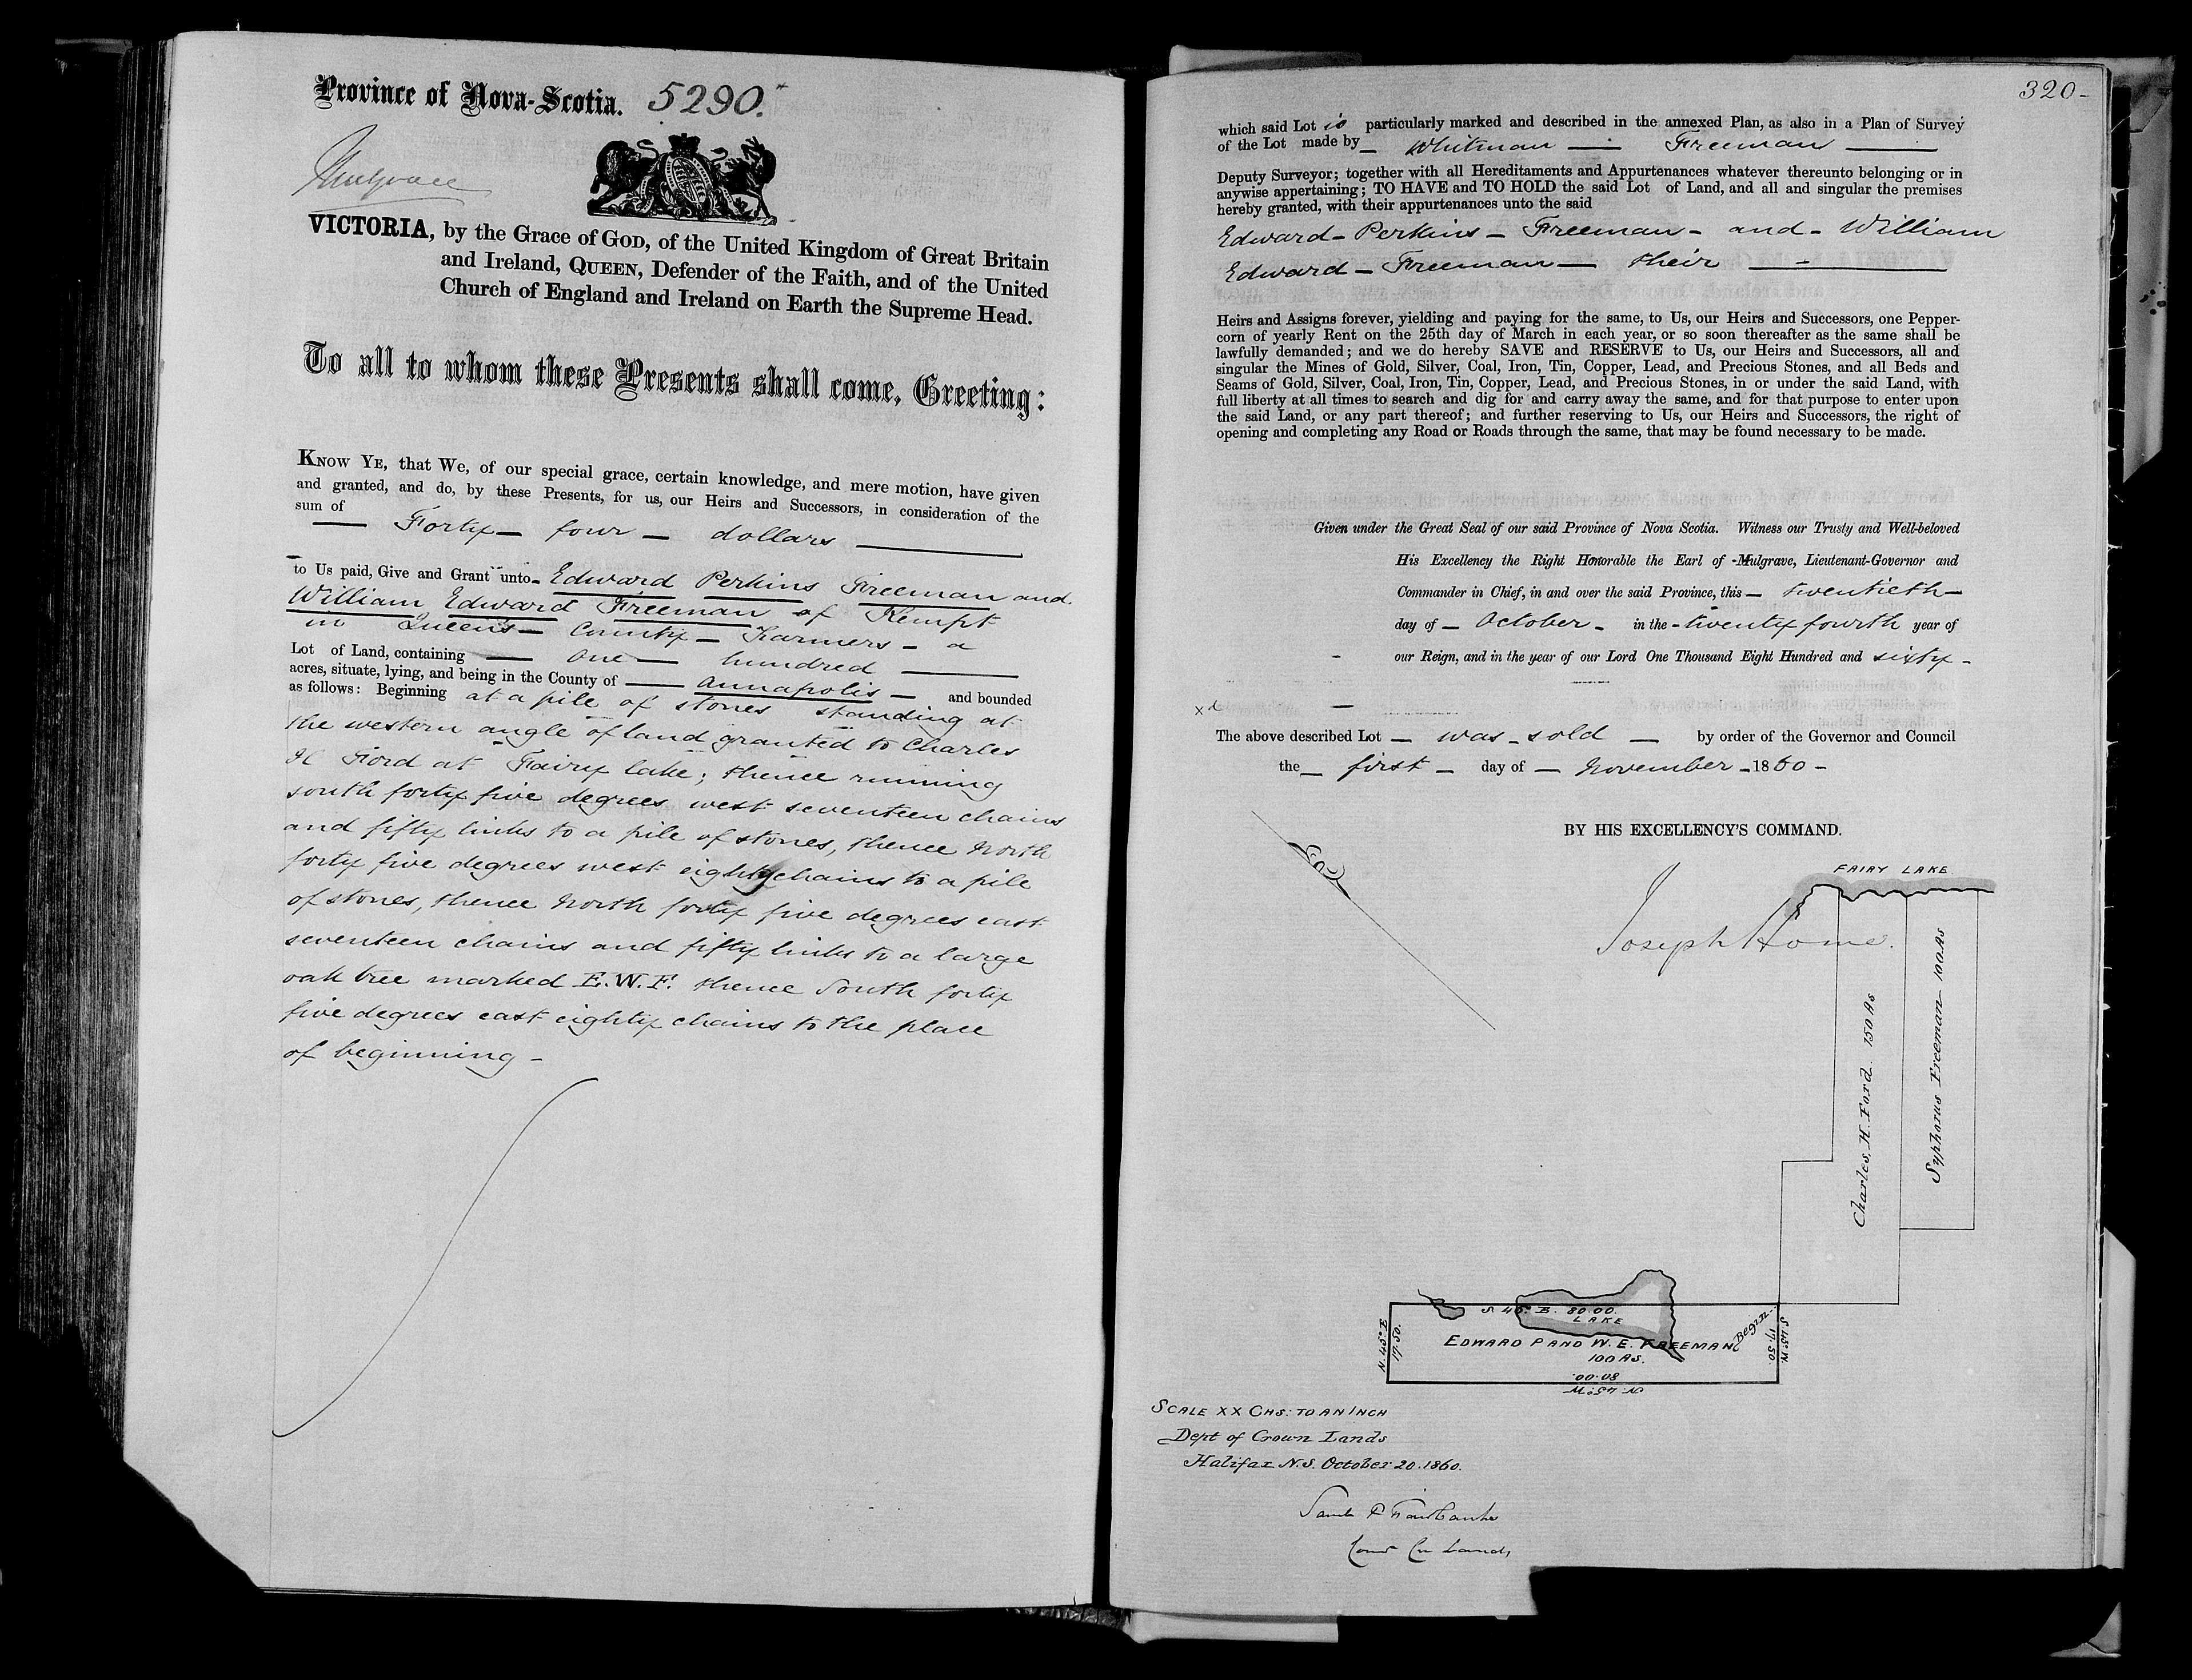 Province of Nova-Scotia. 5290.
Mulgrave
VICTORIA, by the Grace of GOD, of the United Kingdom of Great Britain
and Ireland, QUEEN, Defender of the Faith, and of the United
Church of England and Ireland on Earth the Supreme Head.
To all to whom these Presents shall come, Greeting:
KNOW YE, that We, of our special grace, certain knowledge, and mere motion, have given
and granted, and do, by these Presents, for us, our Heirs and Successors, in consideration of the
sum of
— Forty — four — dollars —
to Us paid, Give and Grant unto - Edward Perkins Freeman and
William Edward Freeman of Kempt
in Queen's County - Farmers - a
Lot of Land, containing — one — hundred —
acres, situate, lying, and being in the County of — Annapolis — and bounded
as follows: Beginning at a pile of stones standing at
the western angle of land granted to Charles
H Ford at Fairy lake; thence running
south forty five degrees west seventeen chains
and fifty links to a pile of stones, thence North
forty five degrees west eighty chains to a pile
of stones, thence North forty five degrees east
seventeen chains and fifty links to a large
oak tree marked E.W.F. thence South forty
five degrees east eighty chains to the place
of beginning -
320-
which said Lot is particularly marked and described in the annexed Plan, as also in a Plan of Survey
of the Lot made by - Whitman — Freeman —
Deputy Surveyor; together with all Hereditaments and Appurtenances whatever thereunto belonging or in
anywise appertaining; TO HAVE and TO HOLD the said Lot of Land, and all and singular the premises
hereby granted, with their appurtenances unto the said
Edward - Perkins - Freeman - and - William
Edward - Freeman — their —
Heirs and Assigns forever, yielding and paying for the same, to Us, our Heirs and Successors, one Pepper-
corn of yearly Rent on the 25th day of March in each year, or so soon thereafter as the same shall be
lawfully demanded; and we do hereby SAVE and RESERVE to Us, our Heirs and Successors, all and
singular the Mines of Gold, Silver, Coal, Iron, Tin, Copper, Lead, and Precious Stones, and all Beds and
Seams of Gold, Silver, Coal, Iron, Tin, Copper, Lead, and Precious Stones, in or under the said Land, with
full liberty at all times to search and dig for and carry away the same, and for that purpose to enter upon
the said Land, or any part thereof; and further reserving to Us, our Heirs and Successors, the right of
opening and completing any Road or Roads through the same, that may be found necessary to be made.
Given under the Great Seal of our said Province of Nova Scotia. Witness our Trusty and Well-beloved
His Excellency the Right Honorable the Earl of -Mulgrave, Lieutenant-Governor and
Commander in Chief, in and over the said Province, this — twentieth —
day of — October — in the - twenty fourth year of
our Reign, and in the year of our Lord One Thousand Eight Hundred and sixty -
The above described Lot — was - sold — by order of the Governor and Council
the — first — day of — November - 1860 -
BY HIS EXCELLENCY'S COMMAND.
Joseph Howe.
FAIRY LAKE
Charles. H. Ford. 150 As
Sypharus Freeman 100 As
S. 45° E. 80.00.
LAKE
Begin
N. 45° E
17.50.
S. 45° W.
17.50.
EDWARD P AND W. E. FREEMAN
100 AS.
80.00.
N. 45° W
SCALE XX CHS: TO AN INCH
Dept of Crown Lands
Halifax N.S. October 20. 1860.
Saml P Fairbanks
Comr Cn Lands